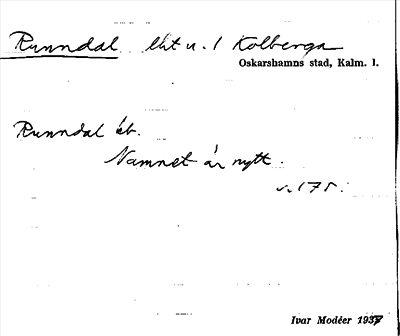 Runndal lht u. 1 Kolberga
Oskarshamns stad, Kalm. l.
Runndal
Namnet är nytt.
Ivar Modéer 1937